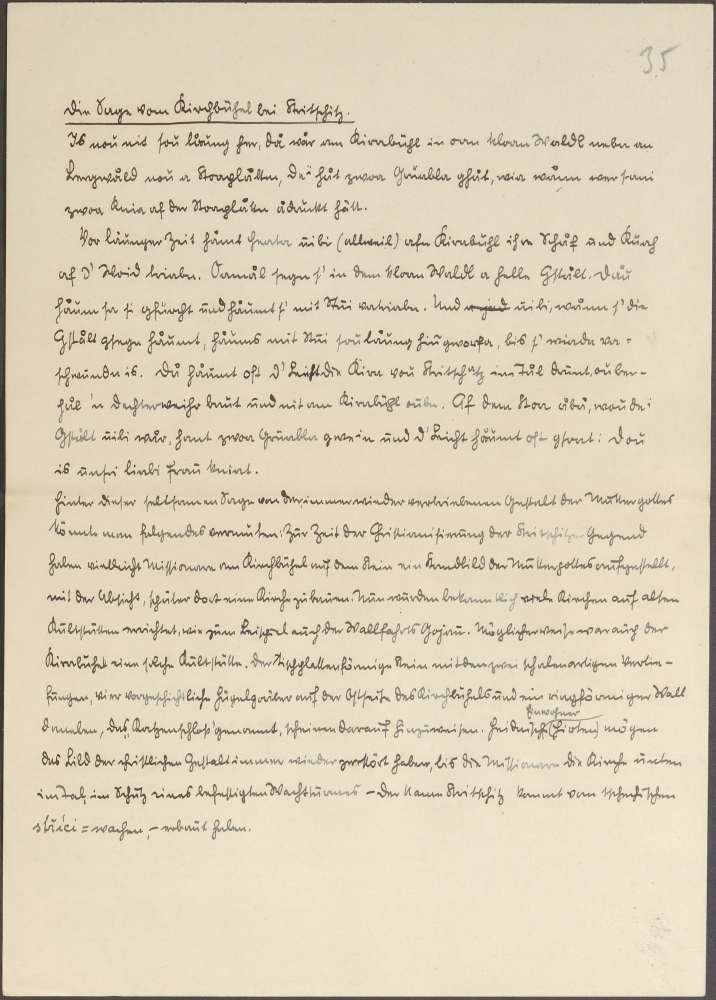 35
Die Sage vom Kirchbühel bei Stritschitz.
Is nou nit sou låung her, då wår am Kirabühl in oan kloan Waldl nebn an
Bergwåld nou a Stoaplåttn, dei håt zwoa Grüabla ghåt, wia wånn wer sani
zwoa Knia af der Stoaplåttn ådruckt hått.
Vor låunger Zeit håmt heata üibi (allweil) afn Kirabühl ihre Schåf und Küah
af d' Woid triabn. Oamål segn s' in dem kloan Waldl a helle Gstålt. Dåu
håum sa si gfürcht und håumt s' mit Stui vatriabn. Und üibi, wånn s' die
Gstålt gsegn håumt, håums mit Stui sou låung hiugworfa, bis s' wieda va=
schwundn is. Då håumt oft d' Leicht die Kira vou Stritschatz im Tål drunt, ouber-
hål 'n Dechterweiher baut und nit am Kirabühl oubn. Af dem Stoa åba, wou dei
Gstålt üibi wår, hant zwoa Grüabla gwe'n und d' Leicht håumt oft gsogt: Dou
is unsri liabi Frau kniat.
Hinter dieser seltsamen Sage von der immer wieder vertriebenen Gestalt der Muttergottes
könnte man folgendes vermuten: Zur Zeit der Christianisierung der Stritschitzer Gegend
haben vielleicht Missionare am Kirchbühel auf dem Stein ein Standbild der Muttergottes aufgestellt,
mit der Absicht, später dort eine Kirche zu bauen. Nun wurden bekanntlich viele Kirchen auf alten
Kultstätten errichtet, wie zum Beispiel auch der Wallfahrts Gojau. Möglicherweise war auch der
Kirabühel eine solche Kultstätte. Der tischplattenförmige Stein mit den zwei schalenartigen Vertie-
fungen, vier vorgeschichtliche Hügelgräber auf der Ostseite des Kirchbühels und ein ringförmiger Wall
daneben, das "Katzenschloß" genannt, scheinen darauf hinzuweisen. Heidnische (Hirten) Einwohner mögen
das Bild der christlichen Gestalt immer wieder zerstört haben, bis die Missionare die Kirche unten
im Tal, im Schutz eines befestigten Wachtturmes – der Name Stritschitz kommt vom tschechischen
střici = wachen, – erbaut haben.